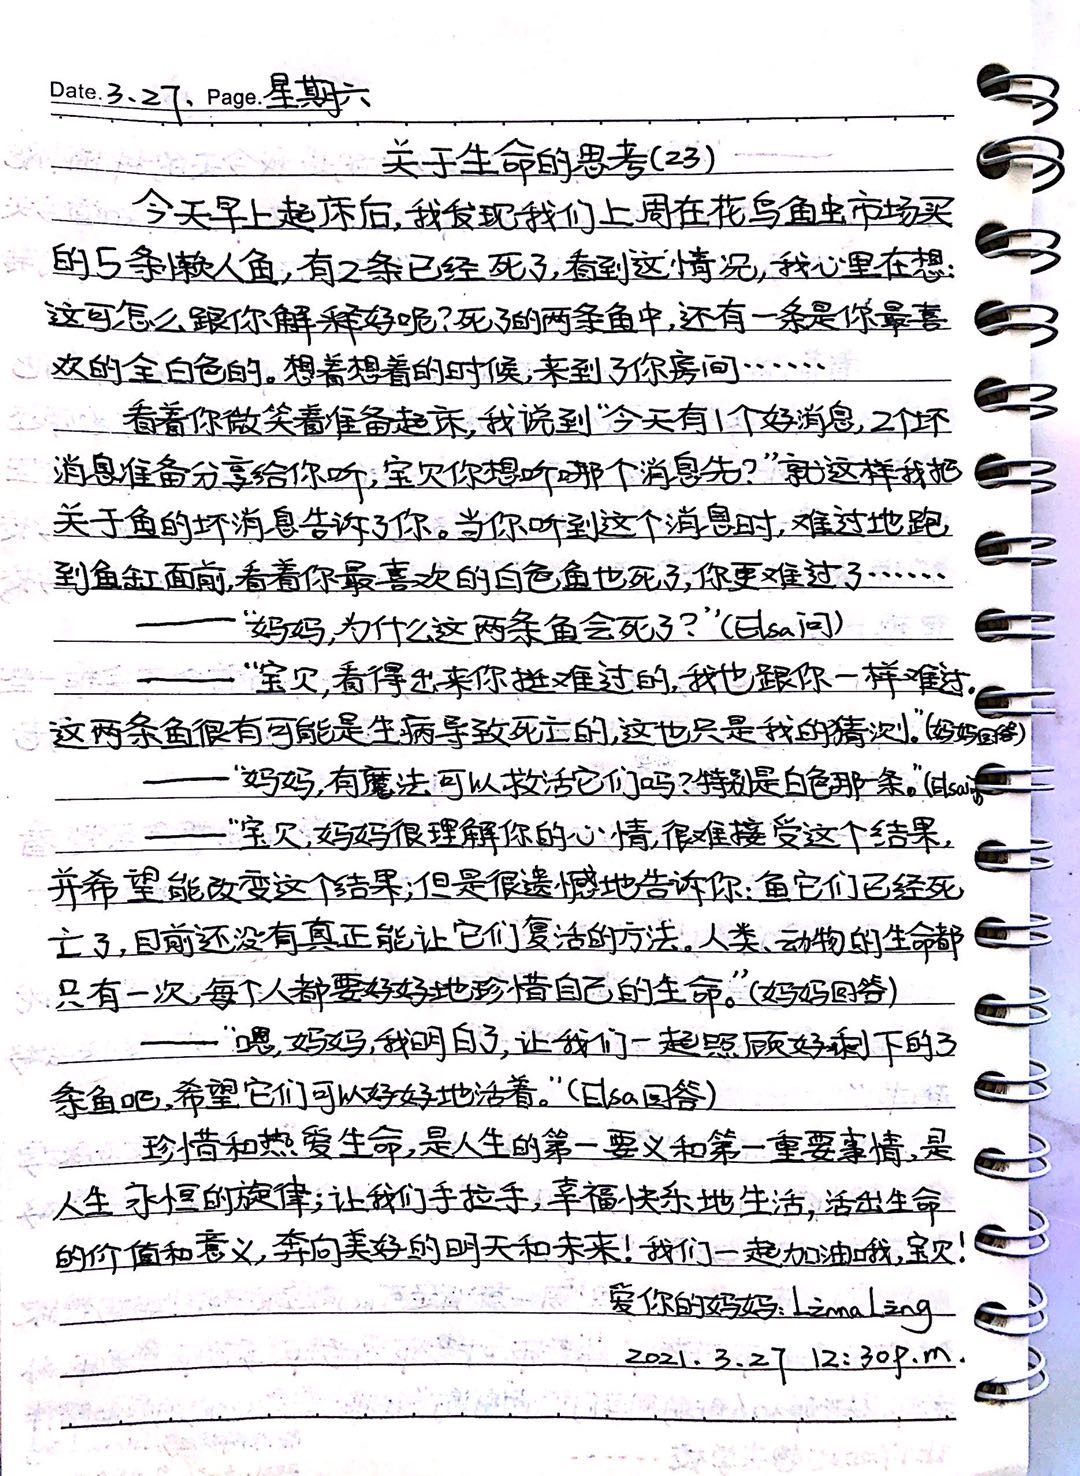 Date. 3.27. Page. 星期六
关于生命的思考(23)
今天早上起床后,我发现我们上周在花鸟鱼虫市场买
的5条懒人鱼,有2条已经死了,看到这情况,我心里在想:
这可怎么跟你解释好呢?死了的两条鱼中,还有一条是你最喜
欢的全白色的。想着想着的时候,来到了你房间……
看着你微笑着准备起床,我说到“今天有1个好消息,2个坏
消息准备分享给你听,宝贝你想听哪个消息先?”就这样我把
关于鱼的坏消息告诉了你。当你听到这个消息时,难过地跑
到鱼缸面前,看着你最喜欢的白色鱼也死了,你更难过了……
——“妈妈,为什么这两条鱼会死了?”(Elsa问)
——“宝贝,看得出来你挺难过的,我也跟你一样难过,
这两条鱼很有可能是生病导致死亡的,这也只是我的猜测。”(妈妈回答)
——“妈妈,有魔法可以救活它们吗?特别是白色那一条。”(Elsa问)
——“宝贝,妈妈很理解你的心情,很难接受这个结果,
并希望能改变这个结果;但是很遗憾地告诉你:鱼它们已经死
亡了,目前还没有真正能让它们复活的方法。人类、动物的生命都
只有一次,每个人都要好好地珍惜自己的生命。”(妈妈回答)
——“嗯,妈妈,我明白了,让我们一起照顾好剩下的3
条鱼吧,希望它们可以好好地活着。”(Elsa回答)
珍惜和热爱生命,是人生的第一要义和第一重要事情,是
人生永恒的旋律;让我们手拉手,幸福快乐地生活,活出生命
的价值和意义,奔向美好的明天和未来!我们一起加油哦,宝贝!
爱你的妈妈:Linna Ling
2021.3.27 12:30p.m.